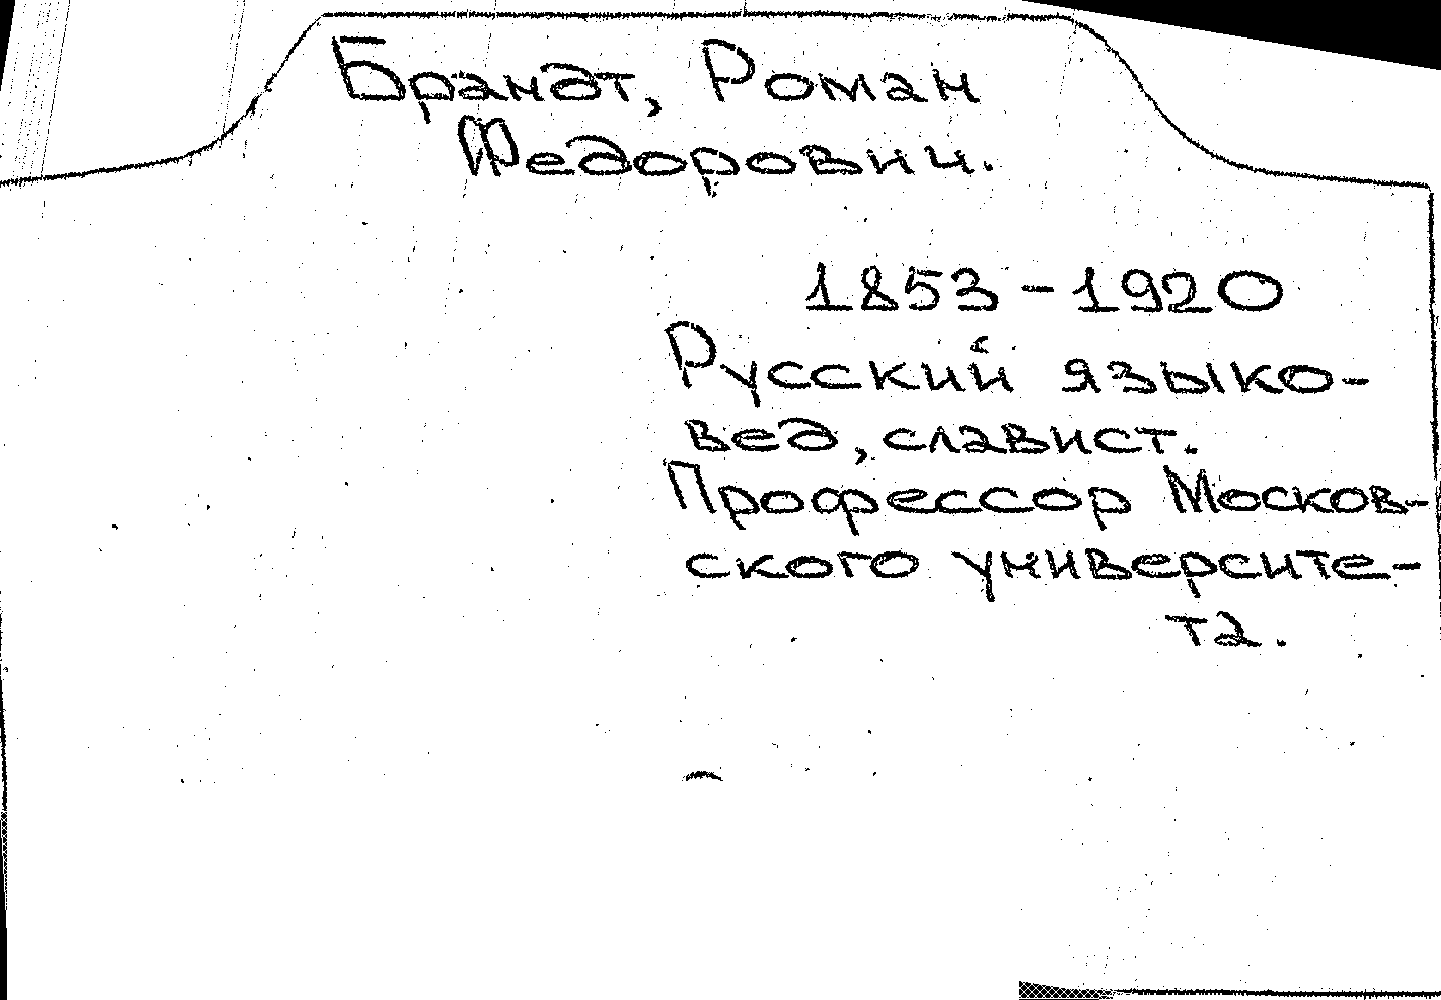 Брандт, Роман
Федорович.
1853-1920
Русский языко-
вед, славист.
Профессор Москов-
ского университе-
та.